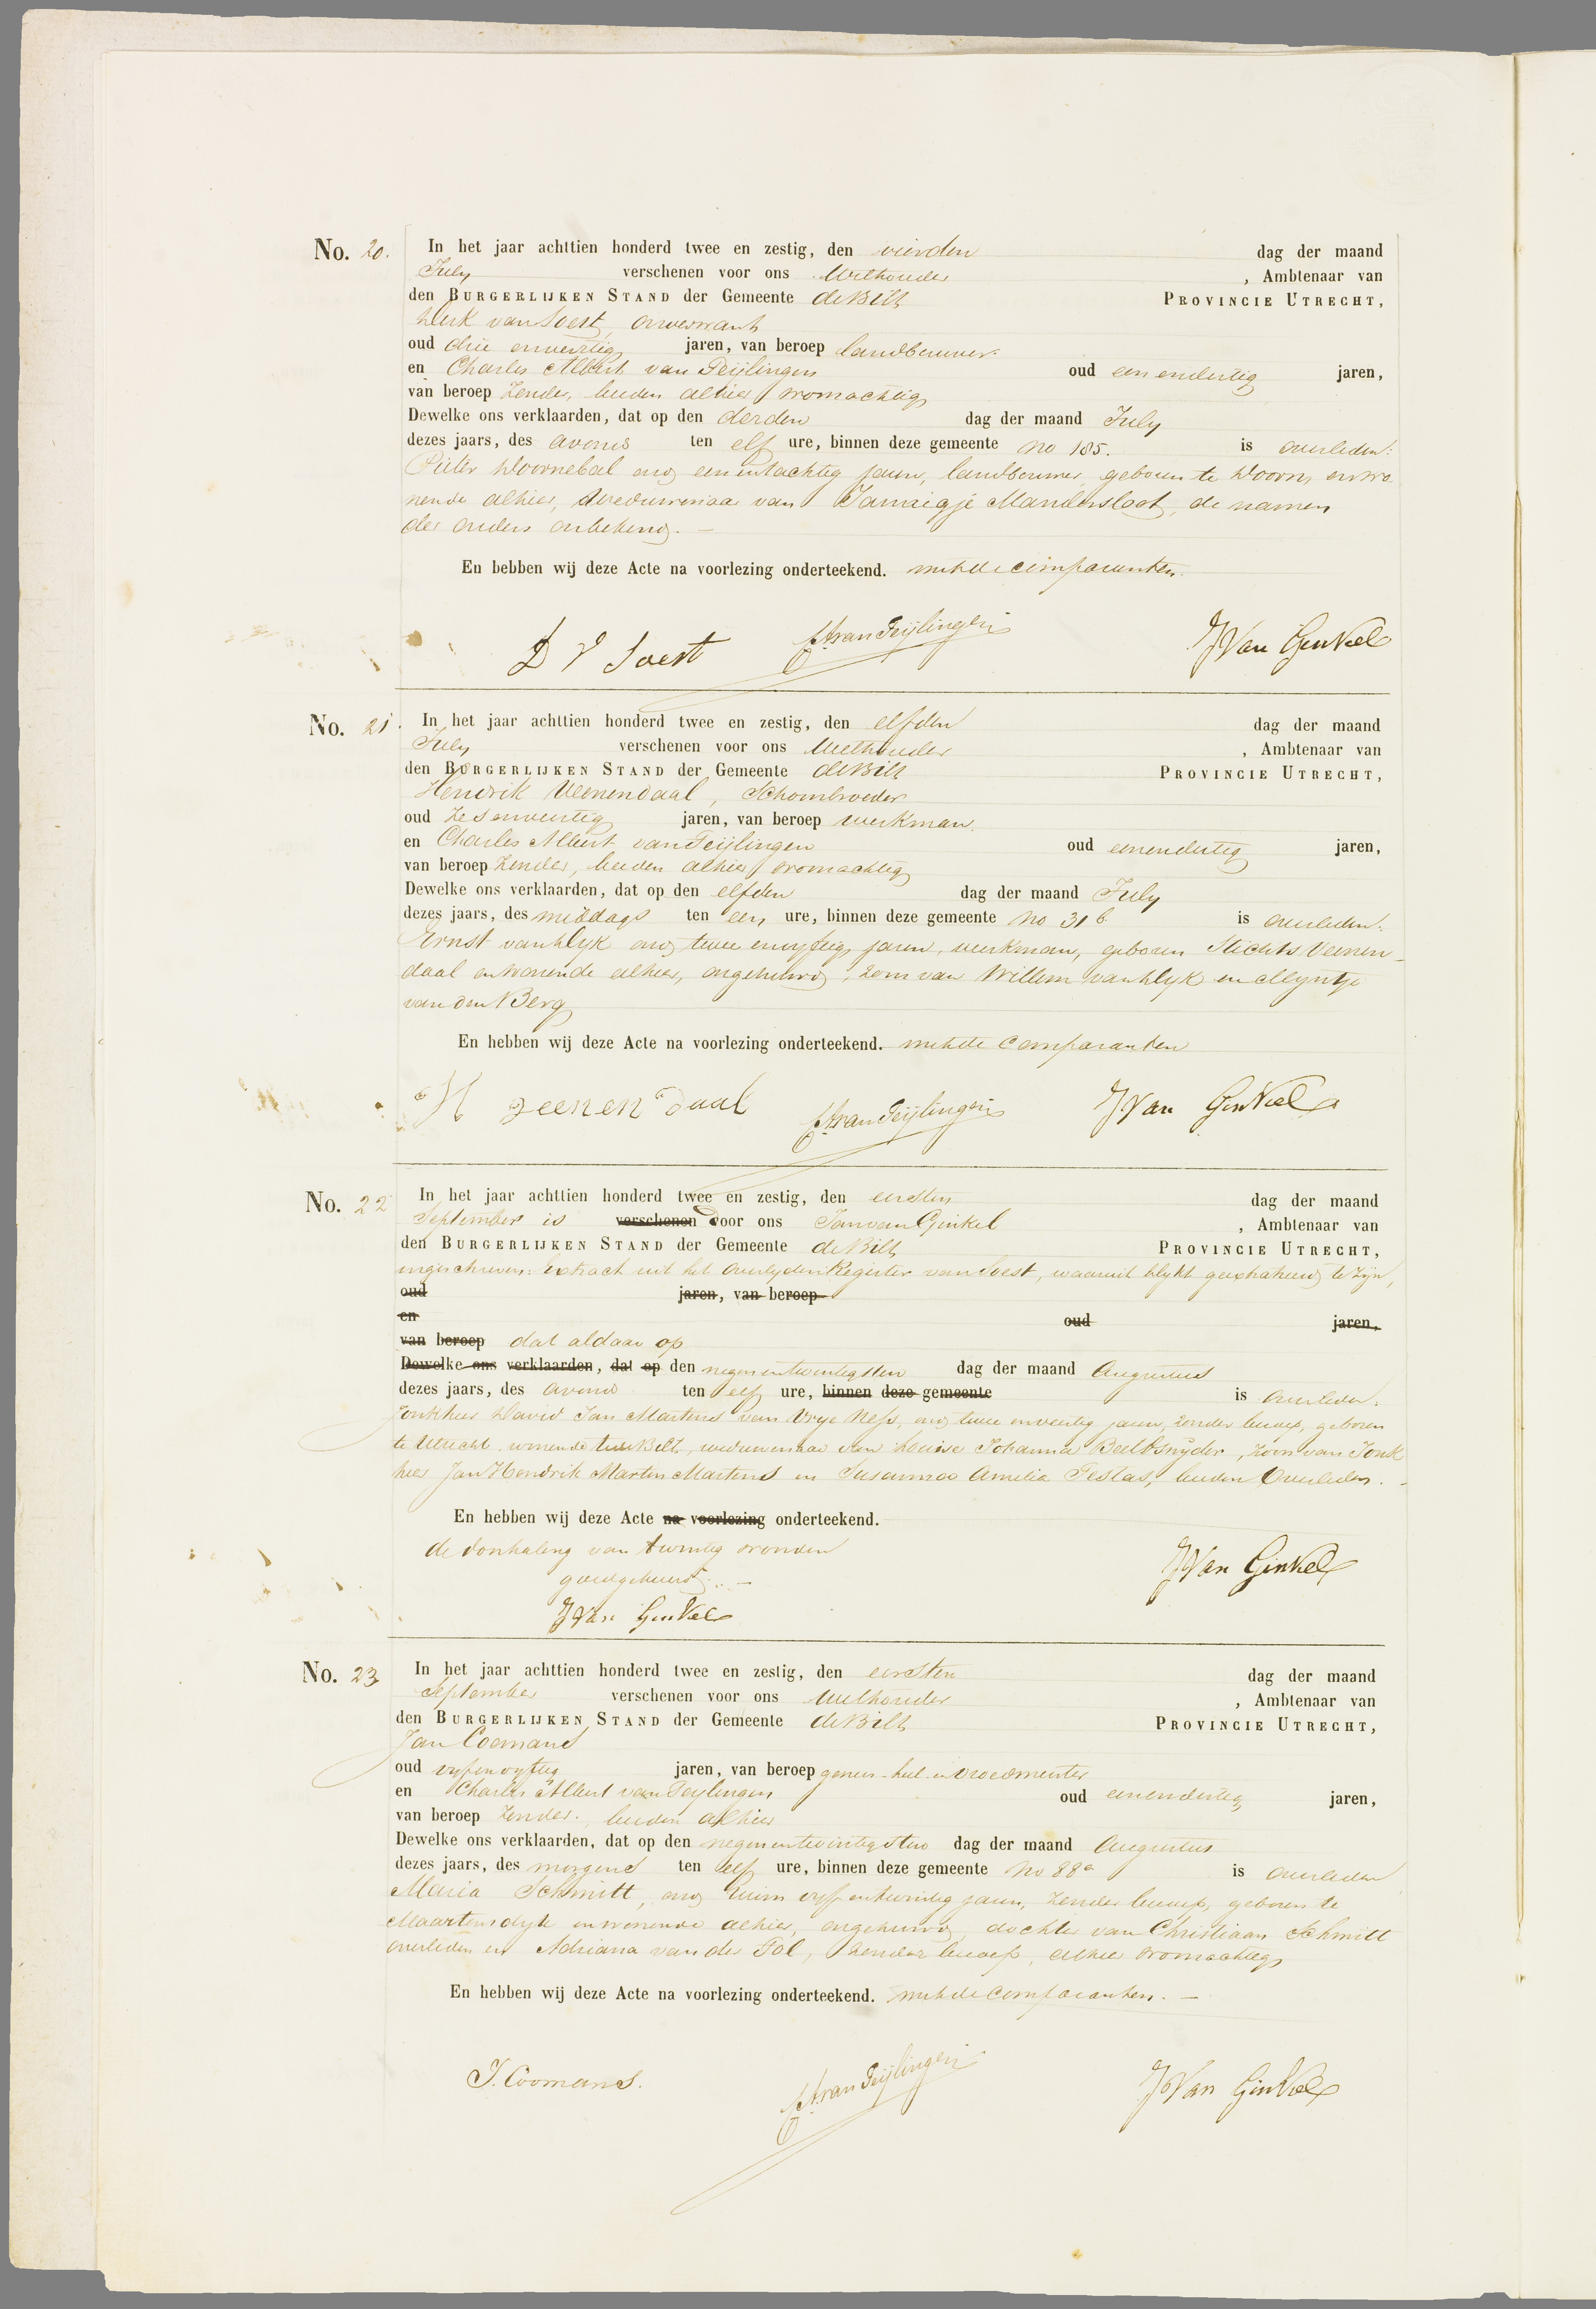 No. 20. In het jaar achttien honderd twee en zestig, den vierden dag der maand
July verschenen voor ons Wethouder , Ambtenaar van
den BURGERLIJKEN STAND der Gemeente de Bilt PROVINCIE UTRECHT,
Dirk van Soest, aanverwant
oud drie en veertig jaren, van beroep landbouwer.
en Charles Albert van Teijlingen oud een en dertig jaren,
van beroep zonder, beiden alhier woonachtig
Dewelke ons verklaarden, dat op den derden dag der maand July
dezes jaars, des avonds ten elf ure, binnen deze gemeente No 185. is overleden:
Pieter Doornebal oud een en tachtig jaren, landbouwer, geboren te Doorn en wo
nende alhier, weduwenaar van Jannigje Mandersloot, de namen
der ouders onbekend. —
En hebben wij deze Acte na voorlezing onderteekend. met de comparanten.
D V Soest CA van Teijlingen J Van Ginkel
No. 21. In het jaar achttien honderd twee en zestig, den elfden dag der maand
July verschenen voor ons Wethouder , Ambtenaar van
den BURGERLIJKEN STAND der Gemeente de Bilt PROVINCIE UTRECHT,
Hendrik Veenendaal, Schoonbroeder
oud zes en veertig jaren, van beroep werkman.
en Charles Albert van Teijlingen oud een en dertig jaren,
van beroep zonder, beiden alhier woonachtig
Dewelke ons verklaarden, dat op den elfden dag der maand July
dezes jaars, des middags ten een ure, binnen deze gemeente No 31 b is overleden:
Ernst van Dyk oud twee en vyftig jaren, werkman, geboren Stichts Veenen-
daal en wonende alhier, ongehuwd, zoon van Willem van Dyk en Meyntje
van den Berg
En hebben wij deze Acte na voorlezing onderteekend. met de comparanten
H veenendaal CA van Teijlingen J Van Ginkel
No. 22 In het jaar achttien honderd twee en zestig, den eersten dag der maand
September is verschenen Door ons Jan van Ginkel , Ambtenaar van
den BURGERLIJKEN STAND der Gemeente de Bilt PROVINCIE UTRECHT,
ingeschreven: Extract uit het Overlyden Register van Soest, waaruit blykt geextraheerd te zijn,
oud jaren, van beroep
en oud jaren,
van beroep dat aldaar op
Dewelke ons verklaarden, dat op den negen en twintigsten dag der maand Augustus
dezes jaars, des avond ten elf ure, binnen deze gemeente is overleden:
Jonkheer David Jan Martens van Vrye Nefs, oud twee en veertig jaren, zonder beroep, geboren
te Utrecht, wonende te de Bilt, weduwenaar van Louise Johanna Beeldsnyder, zoon van Jonk
heer Jan Hendrik Marten Martens en Susanna Amelia Testas, beiden Overleden. -
En hebben wij deze Acte na voorlezing onderteekend.
de doorhaling van twintig woorden
goedgekeurd. — J Van Ginkel
J Van Ginkel
No. 23 In het jaar achttien honderd twee en zestig, den eersten dag der maand
September verschenen voor ons Wethouder , Ambtenaar van
den BURGERLIJKEN STAND der Gemeente de Bilt PROVINCIE UTRECHT,
Jan Coomans
oud vyf en vyftig jaren, van beroep genees-heel-en vroedmeester
en Charles Albert van Teylingen oud een en dertig jaren,
van beroep zonder, beiden alhier
Dewelke ons verklaarden, dat op den negen en twintigsten dag der maand Augustus
dezes jaars, des morgens ten elf ure, binnen deze gemeente No 88a is overleden
Maria Schmitt, oud ruim vyf en twintig jaren, zonder beroep, geboren te
Maartensdyk en wonende alhier, ongehuwd, dochter van Christiaan Schmitt
overleden en Adriana van der Tol, zonder beroep, alhier woonachtig
En hebben wij deze Acte na voorlezing onderteekend. met de comparanten. —
J. Coomans. CA van Teijlingen J Van Ginkel